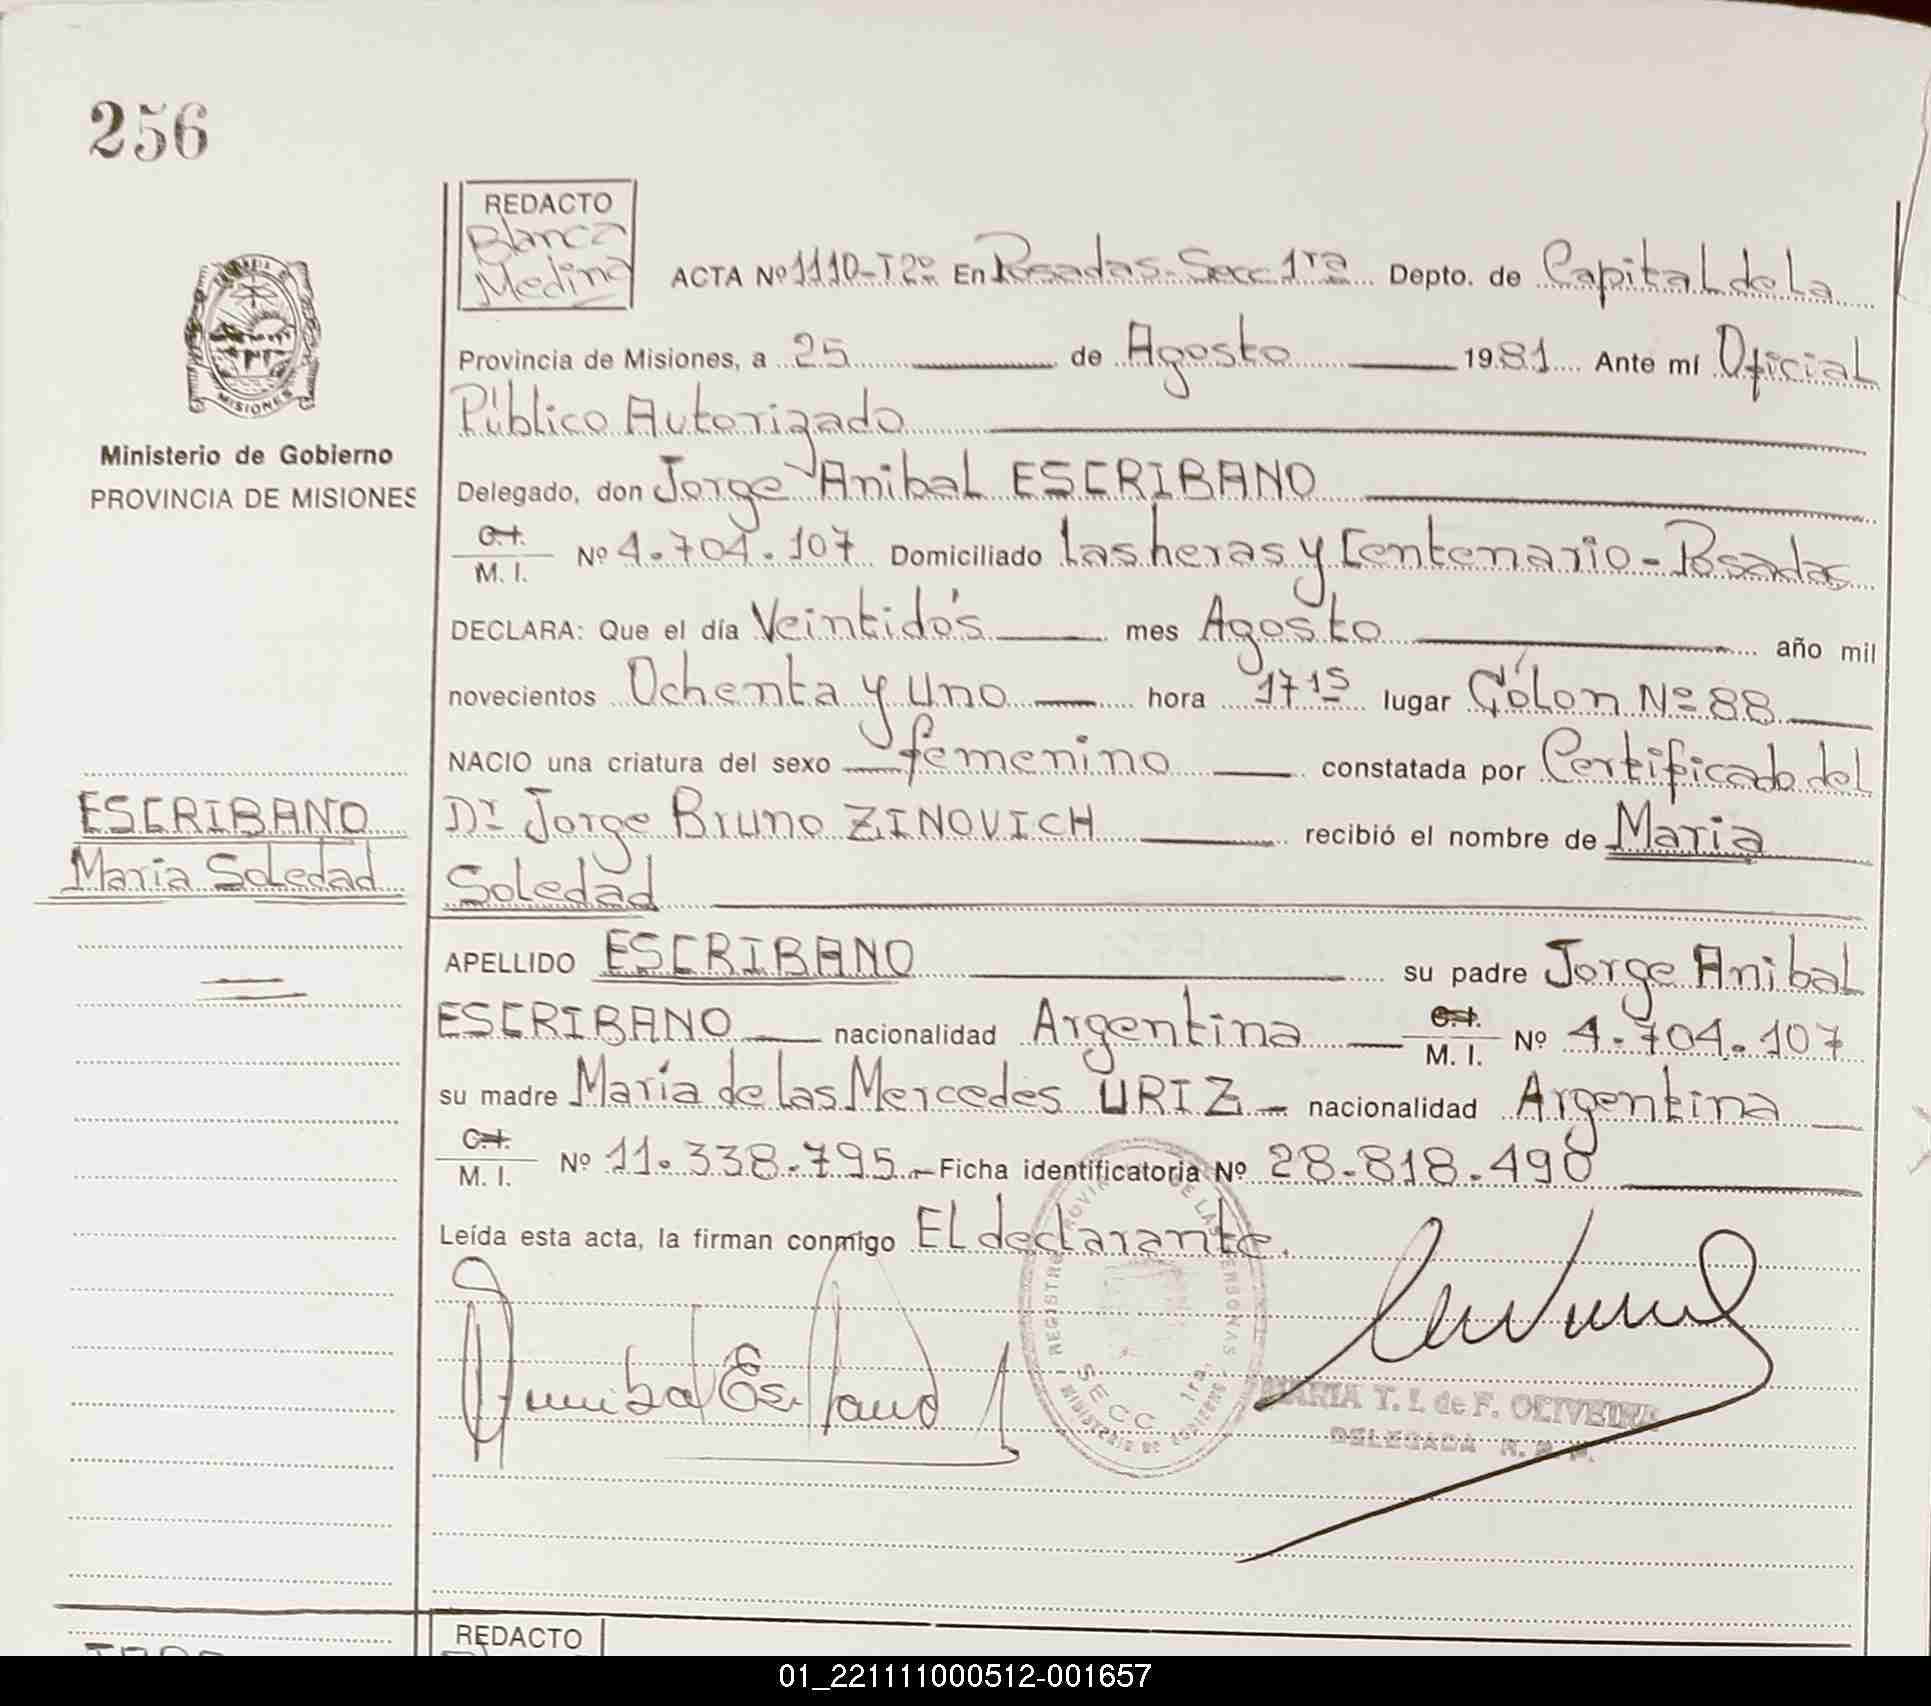 256
REDACTO
Blanca
Medina
ACTA Nº 1110-T2º En Posadas-Secc 1ra Depto. de Capital de la
Provincia de Misiones, a 25 de Agosto 1981 Ante mí Oficial
Público Autorizado
Ministerio de Gobierno
PROVINCIA DE MISIONES
MISIONES
Delegado, don Jorge Anibal ESCRIBANO
C.I. M. I. Nº 4.704.107 Domiciliado Las heras y Centenario - Posadas
DECLARA: Que el día Veintidós mes Agosto año mil
novecientos Ochenta y uno hora 17 15 lugar Cólon Nº 88
NACIO una criatura del sexo femenino constatada por Certificado del
Dr Jorge Bruno ZINOVICH recibió el nombre de Maria
Soledad
ESCRIBANO
Maria Soledad
APELLIDO ESCRIBANO su padre Jorge Anibal
ESCRIBANO nacionalidad Argentina C.I. M. I. Nº 4.704.107
su madre María de las Mercedes URIZ nacionalidad Argentina
C.I. M. I. Nº 11.338.795 Ficha identificatoria Nº 28.818.490
Leída esta acta, la firman conmigo El declarante.
REGISTRO PROVIN DE LAS PERSONAS
SECC 1ra.
MINISTERIO DE GOBIERNO
MARIA T. I. de F. OLIVEIRA
DELEGADA R. P. P.
REDACTO
01_221111000512-001657